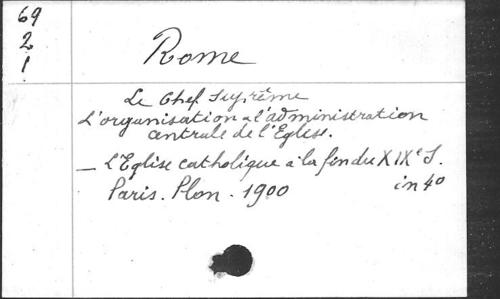 69
2
1
Rome
Le Chef Suprême
L'organisation et l'administration
centrale de l'Eglise.
— L'Eglise catholique à la fin du XIXe S.
Paris. Plon. 1900 in 4o